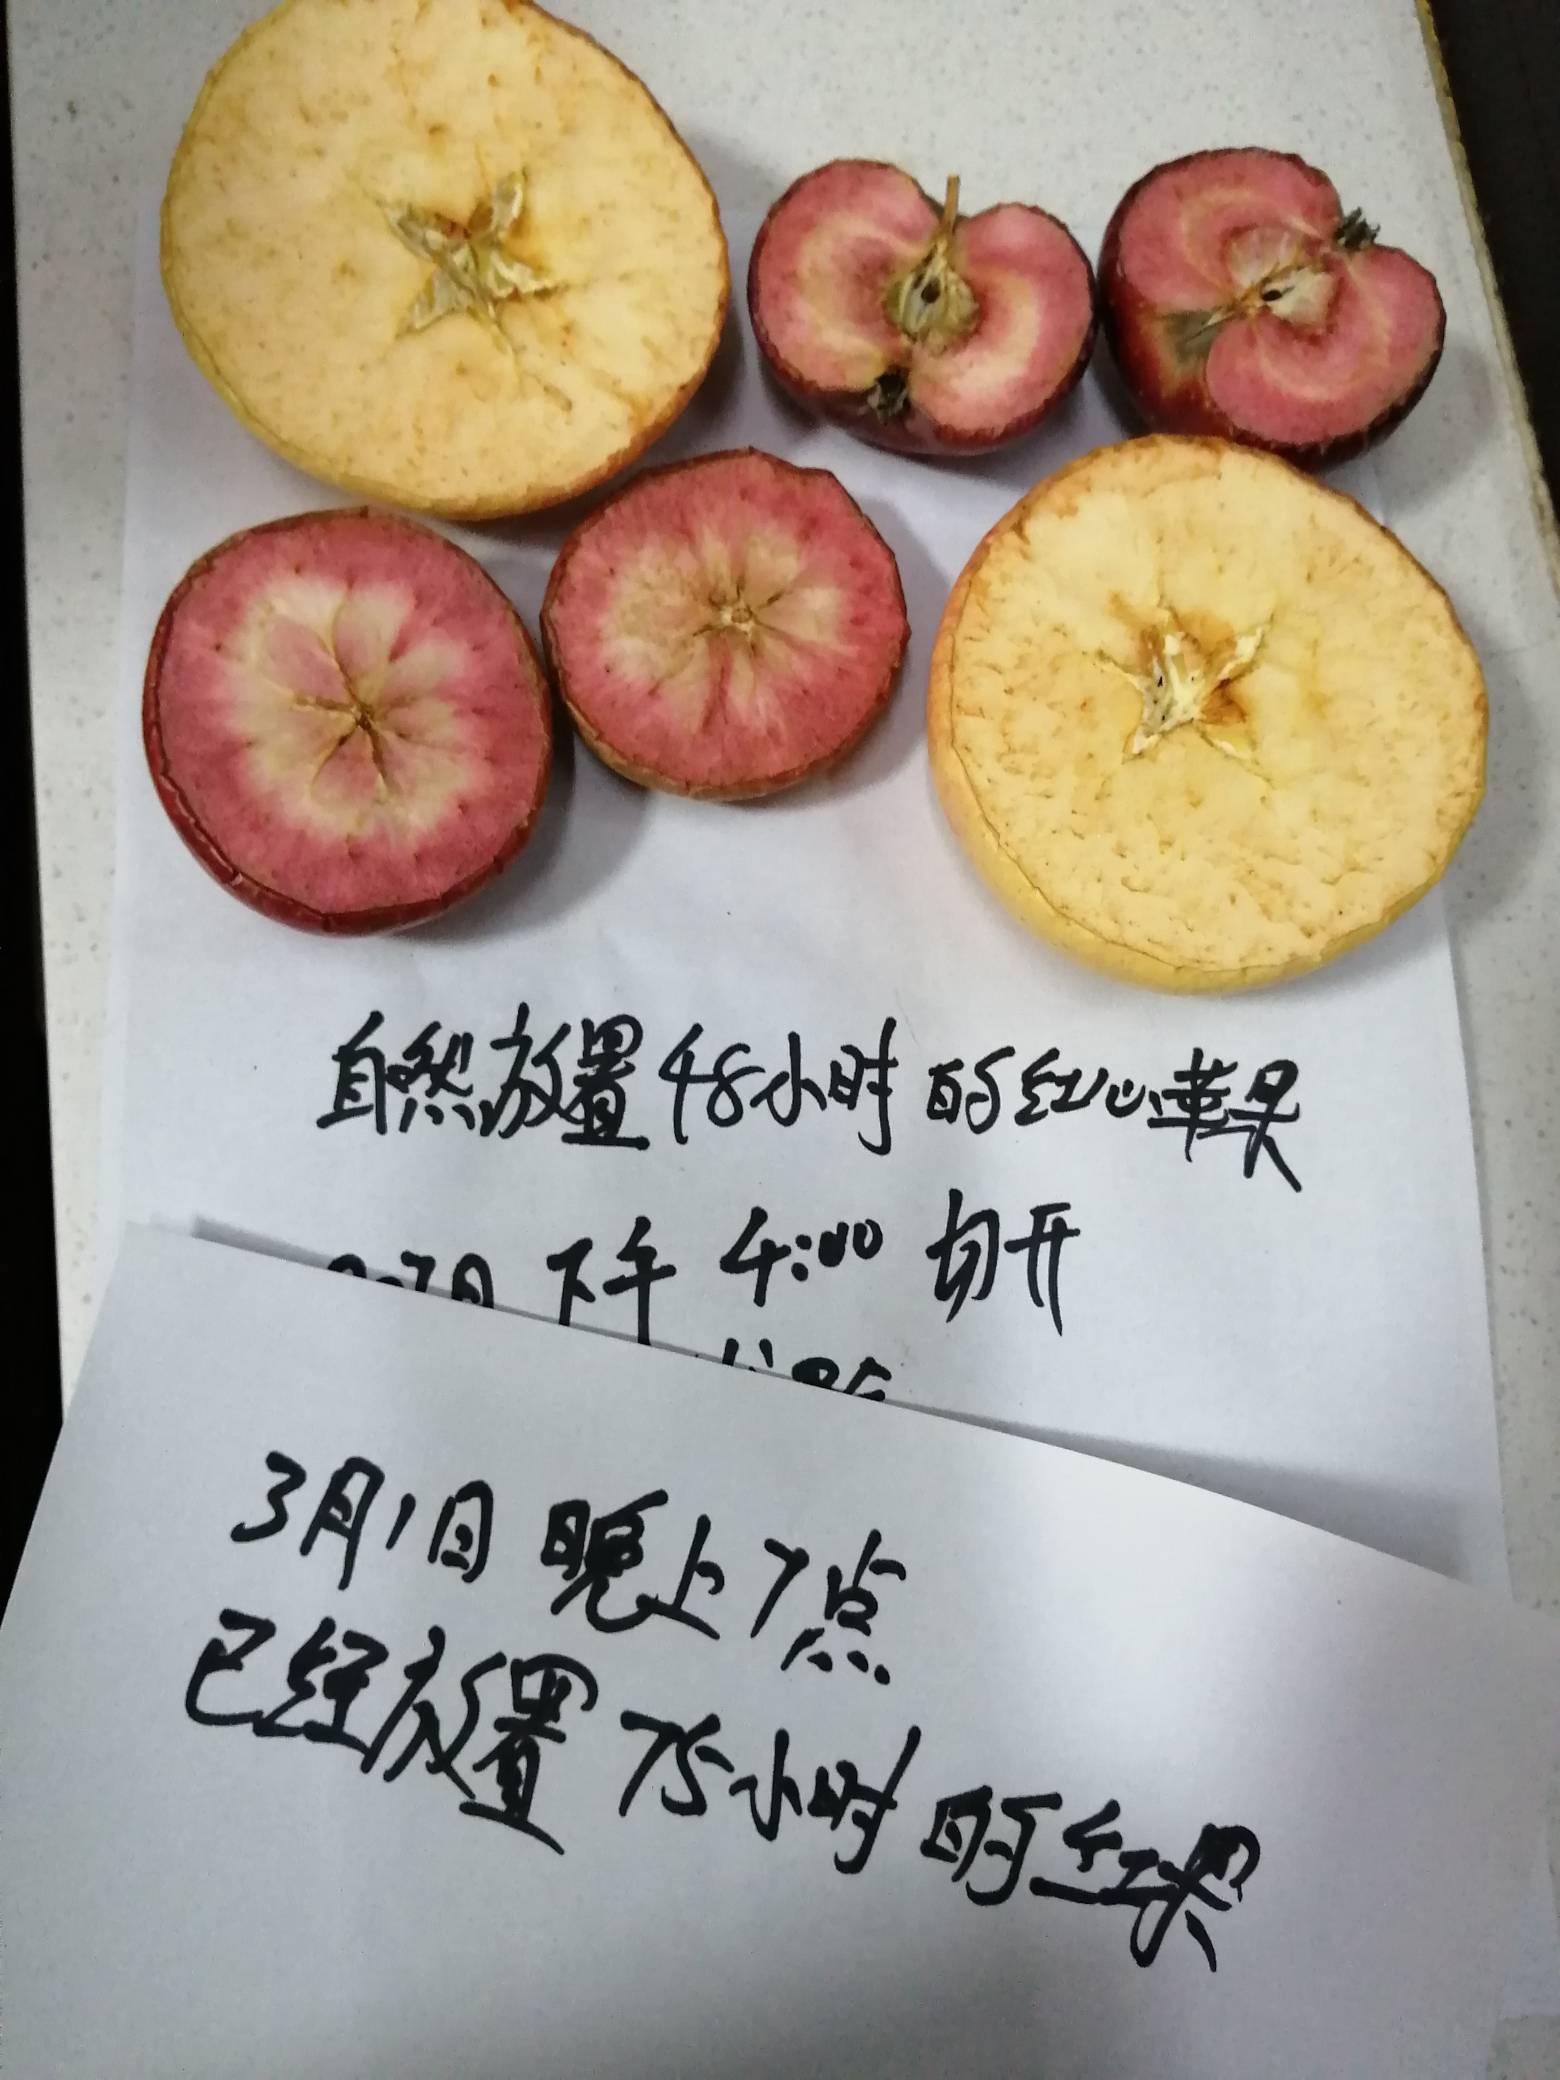 自然放置48小时的红心苹果
27日 下午 4:00 切开
3月1日 晚上7点
已经放置75小时的红果